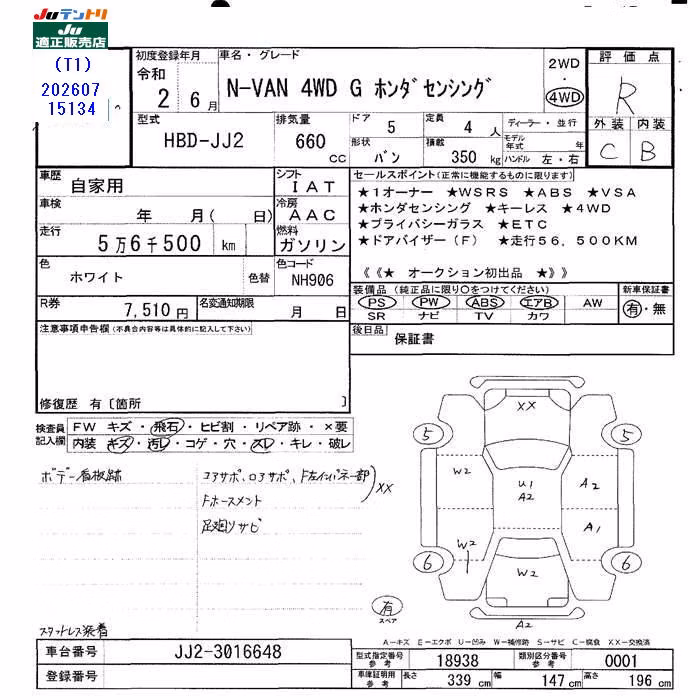 JUテントリ
JU
適正販売店
(T1)
202607
15134
初度登録年月
令和
2 6月
車名・グレード
N-VAN 4WD G ホンダセンシング
2WD
・
4WD
評価点
R
外装 内装
C B
型式
HBD-JJ2
排気量
660
cc
ドア
5
定員
4 人
ディーラー・並行
形状
バン
積載
350 kg
モデル年式 年
ハンドル 左・右
車歴
自家用
シフト
IAT
車検
年 月( 日)
冷房
AAC
走行
5万6千500 km
燃料
ガソリン
色
ホワイト
色替
色コード
NH906
R券
7,510円
名変通知期限
月 日
セールスポイント(正常に機能するものに限ります)
★1オーナー ★WSRS ★ABS ★VSA
★ホンダセンシング ★キーレス ★4WD
★プライバシーガラス ★ETC
★ドアバイザー(F) ★走行56,500KM
《《★ オークション初出品 ★》》
装備品(純正品に限り○をつけてください)
新車保証書
PS PW ABS エアB AW
有・無
SR ナビ TV カワ
後日品
保証書
注意事項申告欄(不具合内容等は具体的に記入して下さい)
修復歴 有〔箇所 〕
検査員
記入欄
FW キズ・飛石・ヒビ割・リペア跡・×要
内装 キズ・汚レ・コゲ・穴・スレ・キレ・破レ
ボデー看板跡
コアサポ、ロアサポ、F左インパネ一部
Fホースメント
XX
足廻りサビ
スタットレス装着
XX
5
5
W2
U1
A2
A2
A1
W2
6
6
W2
有
スペア
A2
A-キズ E-エクボ U-凹み W-補修跡 S-サビ C-腐食 XX-交換済
車台番号
JJ2-3016648
登録番号
型式指定番号
参考
18938
類別区分番号
参考
0001
車庫証明用
参考
長さ
339 cm
幅
147 cm
高さ
196 cm